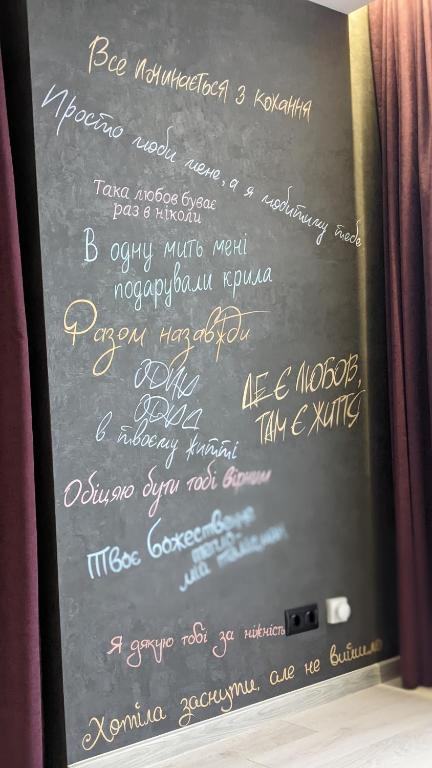 Все починається з кохання
Просто люби мене, а я любитиму тебе
Така любов буває
раз в ніколи
В одну мить мені
подарували крила
Разом назавжди
ОДНА
ОДНА
в твоєму житті
ДЕ Є ЛЮБОВ,
ТАМ Є ЖИТТЯ
Обіцяю бути тобі вірним
Твоє божественне
тепло-
мій талісман
Я дякую тобі за ніжність
Хотіла заснути, але не вийшло